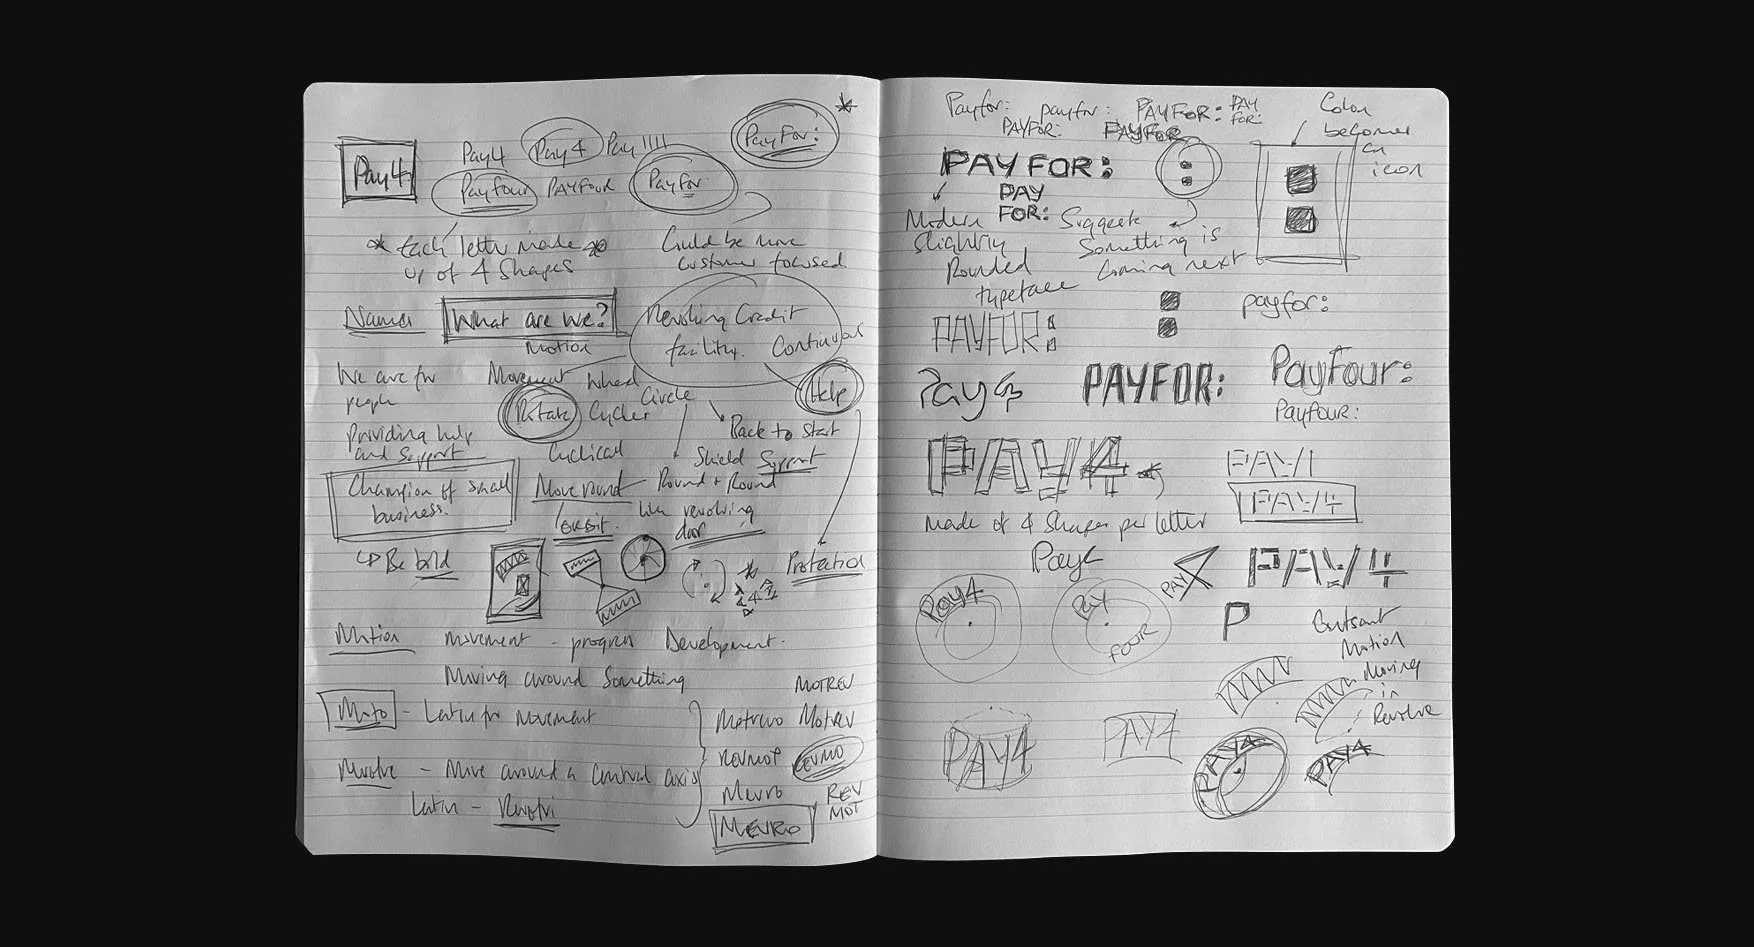 Pay4
Pay4 Pay4 Pay
PayFor:
Payfour PAYFOUR Payfor
Each letter made
up of 4 shapes
Could be more
customer focused
Names
What are we?
Motion
Revolving Credit
facility. Continual
We are for
people
Movement Wheel
Circle
Help
Rotate Cycles
Providing help
and support
Back to Start
Cyclical
Shield Support
Champion of small
business.
Move round
Round + Round
like revolving
door
orbit.
Be bold
Protection
Motion movement - progress Development.
Moving around something
MOTREV
Moto - Latin for Movement
Motrevo Motrev
Revmot REVMO
Revolve - Move around a central axis
Mevro REV
MOT
Latin -
MEVRO
Payfor: payfor: PAYFOR: PAY
FOR:
PAYFOR: PAYFOR
Colon
becomes
an
icon
PAYFOR:
PAY
FOR:
Modern
slightly
Rounded
typeface
Suggests
Something is
Coming next
payfor:
PAYFOR:
Pay
PAYFOR:
PayFour:
Payfour:
PAY4
PAY/
PAY4
made of 4 shapes per letter
Pay
PAY
PAY4
Pay4
Pay
FOUR
P
Constant
Motion
Moving
in
Revolve
PAY4
PAY4
PAY4
PAY4